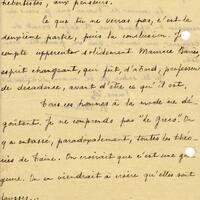 hebertistes, aux penseurs.
Ce que tu ne verras pas, c'est la
deuxième partie, puis la conclusion. Je
compte appréhender solidement Maurice Barrès,
esprit changeant, qui fut, d'abord, professeur
de décadence, avant d'être ce qu'il est.
Tous ces hommes à la mode me dé-
goûtent. Je ne comprends pas "le Greco". On
y a entassé, paradoxalement, toutes les théo-
ries de Taine. On croirait que c'est une ga-
geure. On en viendrait à croire qu'elles sont
fausses...